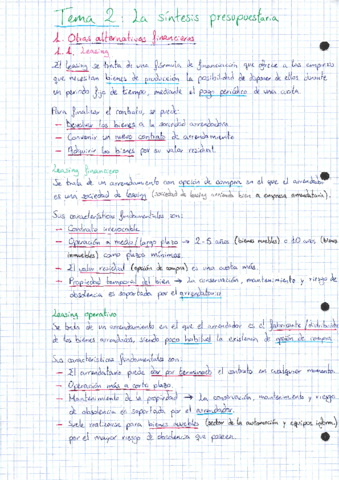 Tema 2: La síntesis presupuestaria
1. Otras alternativas financieras
1.1. Leasing
El leasing se trata de una fórmula de financiación que ofrece a las empresas
que necesitan bienes de producción la posibilidad de disponer de ellos durante
un periodo fijo de tiempo, mediante el pago periódico de una cuota.
Para finalizar el contrato, se puede:
- Devolver los bienes a la sociedad arrendadora
- Convenir un nuevo contrato de arrendamiento
- Adquirir los bienes por su valor residual.
Leasing financiero
Se trata de un arrendamiento con opción de compra en el que el arrendador
es una sociedad de leasing (sociedad de leasing arrienda bien a empresa arrendataria).
Sus características fundamentales son:
- Contrato irrevocable
- Operación a medio/largo plazo → 2-5 años (bienes muebles) o 10 años (bienes
inmuebles) como plazos mínimos.
- El valor residual (opción de compra) es una cuota más.
- Propiedad temporal del bien → La conservación, mantenimiento y riesgo de
obsolencia es soportada por el arrendatario
Leasing operativo
Se trata de un arrendamiento en el que el arrendador es el fabricante/distribuidor
de los bienes arrendados, siendo poco habitual la existencia de opción de compra
Sus características fundamentales son:
- El arrendatario puede dar por terminado el contrato en cualquier momento.
- Operación más a corto plazo.
- Mantenimiento de la propiedad → La conservación, mantenimiento y riesgo
de obsolencia es soportada por el arrendador.
- Suele realizarse para bienes muebles (sector de la automoción y equipos inform.)
por el mayor riesgo de obsolencia que poseen.